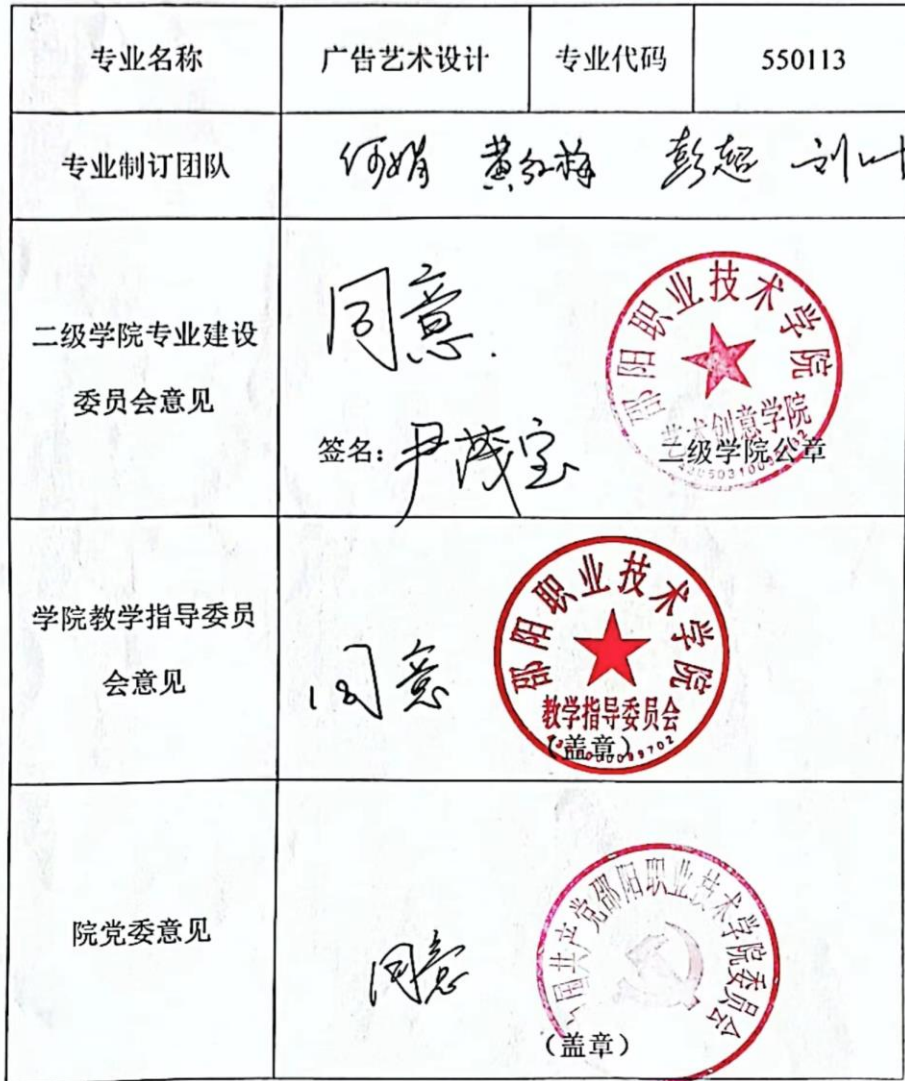 专业名称 广告艺术设计 专业代码 550113
专业制订团队 何娟 黄红梅 彭超
二级学院专业建设
委员会意见
同意.
签名：尹茂宝
邵阳职业技术学院
艺术创意学院
二级学院公章
学院教学指导委员
会意见
同意
邵阳职业技术学院
教学指导委员会
（盖章）
院党委意见
同意
中国共产党邵阳职业技术学院委员会
（盖章）